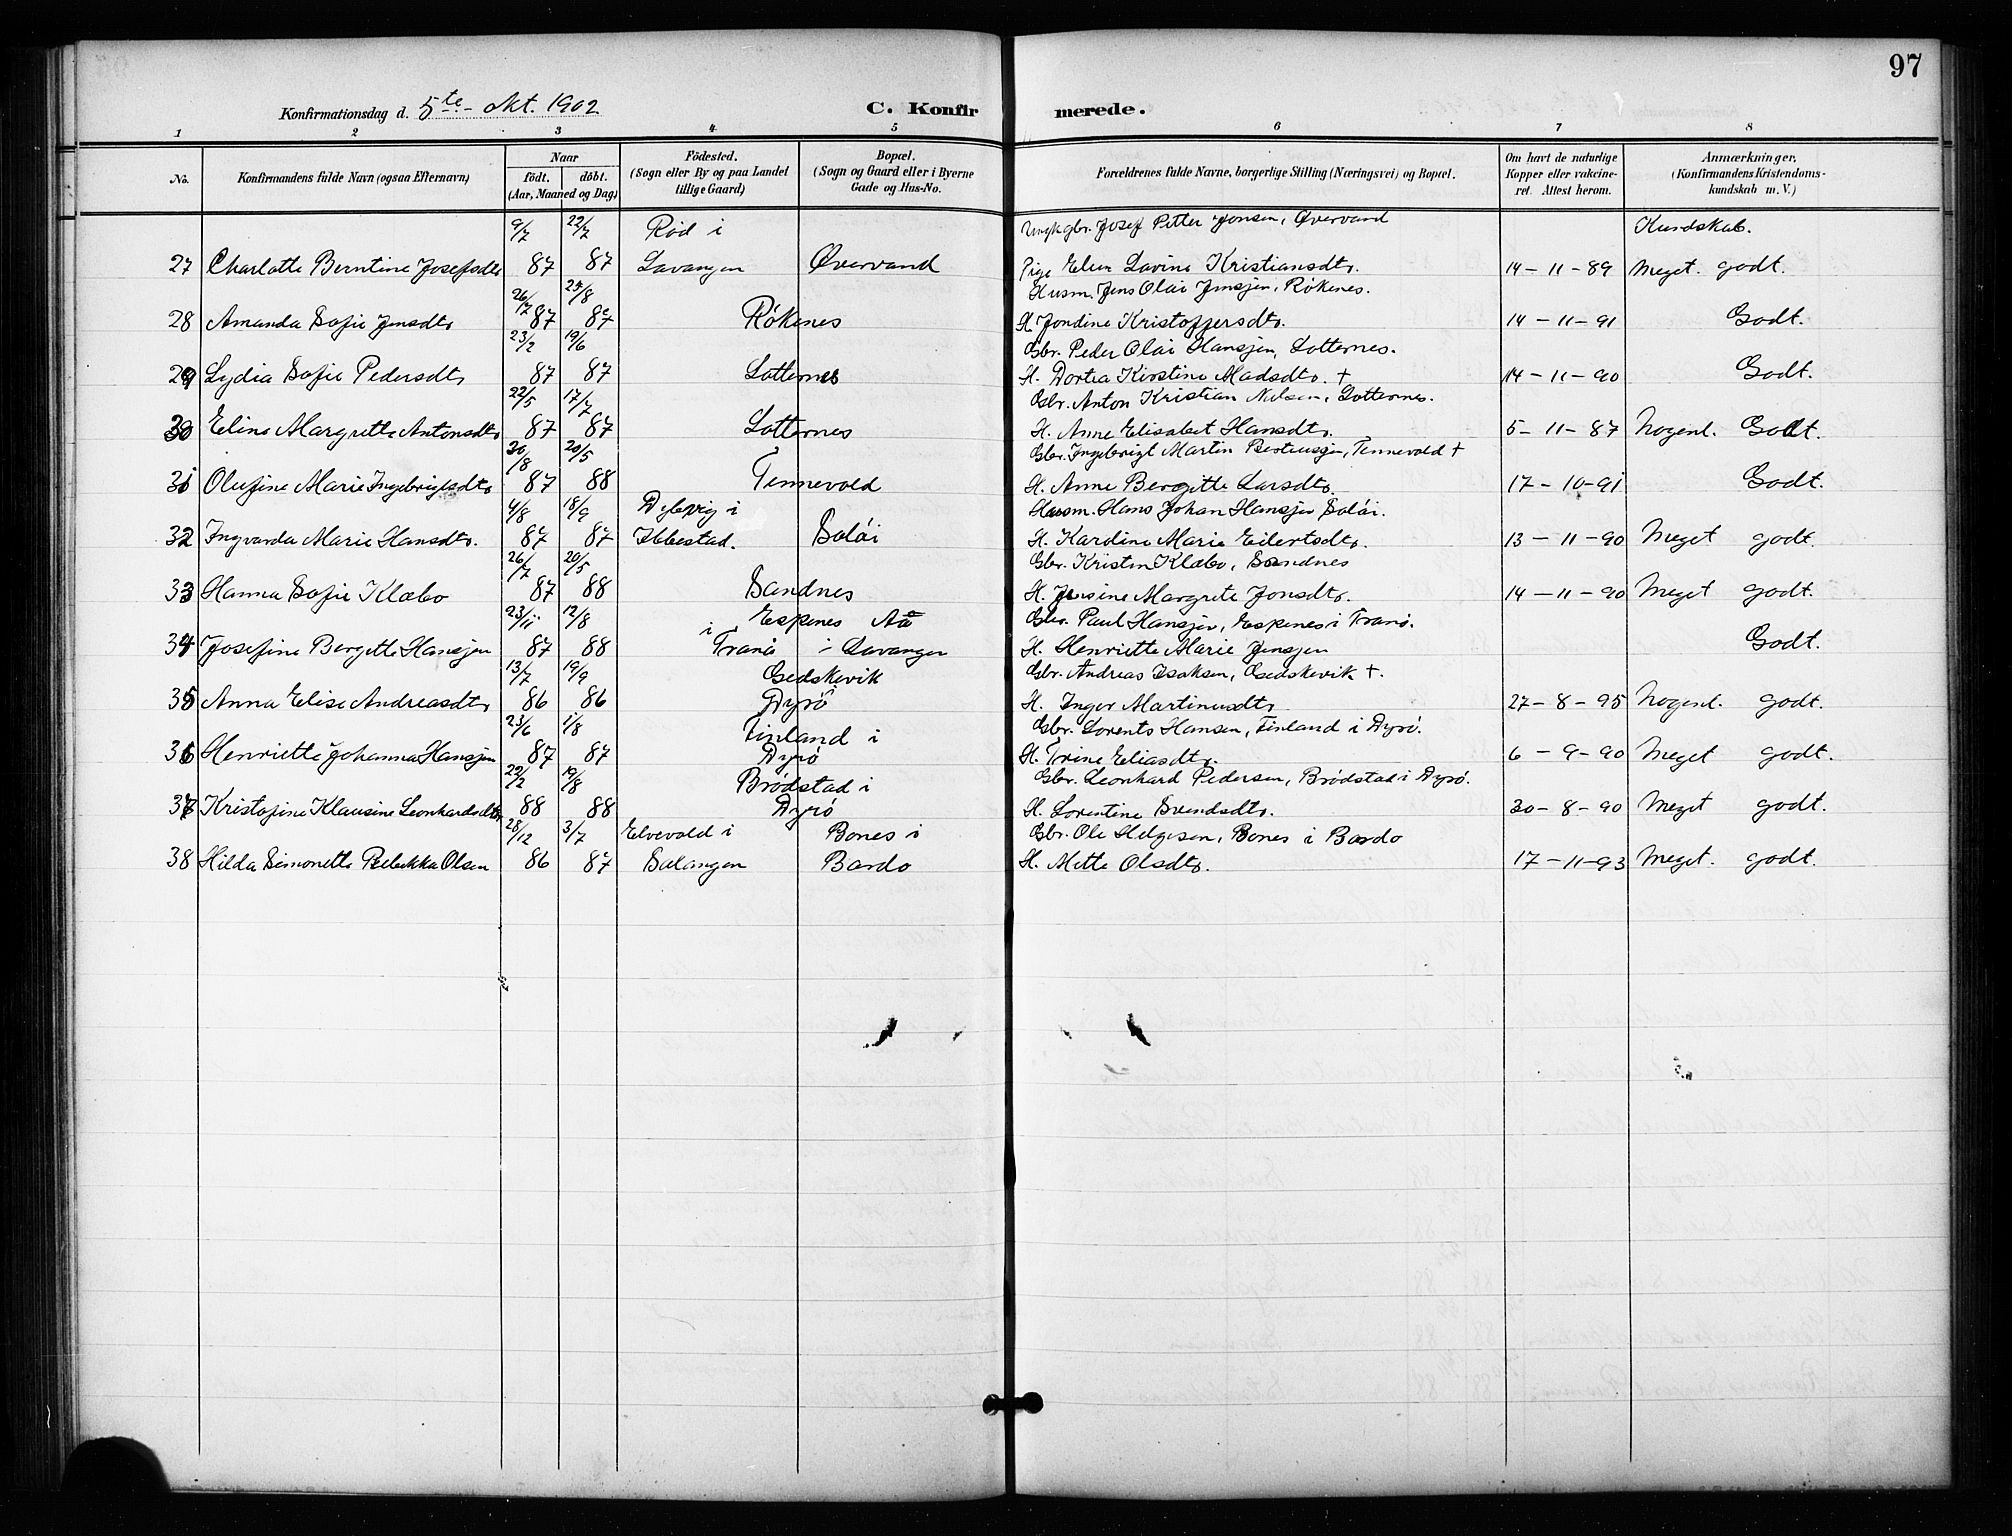 97
Konfirmationsdag d. 5te - Okt. 1902
C. Konfirmerede.
1 2 3 4 5 6 7 8
No.
Konfirmandens fulde Navn (ogsaa Efternavn)
Naar
födt. döbt.
(Aar, Maaned og Dag)
Födested.
(Sogn eller By og paa Landet
tillige Gaard)
Bopæl.
(Sogn og Gaard eller i Byerne
Gade og Hus-No.
Forældrenes fulde Navne, borgerlige Stilling (Næringsvei) og Bopæl.
Om havt de naturlige
Kopper eller vakcine-
ret. Attest herom.
Anmærkninger,
(Konfirmandens Kristendoms-
kundskab m. V.)
9/7 22/7 Röd i Ungkgbr. Josef Petter Jonsen, Øvervand Kundskab.
27 Charlotte Berntine Josefsdtr 87 87 Lavangen Øvervand Pige Elen Lavine Kristiansdtr. 14-11-89 Meget. godt.
26/12 25/8 Husm. Jens Olai Jensen, Rökenes.
28 Amanda Sofie Jensdtr 87 87 Rökenes H. Jondine Kristoffersdtr. 14-11-91 Godt.
23/2 19/6 Gbr. Peder Olai Hansjen, Lotternes.
29 Lydia Sofie Pedersdtr 87 87 Lotternes H. Dortea Kirstine Madsdtr. † 14-11-90 Godt.
22/5 17/7 Gbr. Anton Kristian Nielsen, Lotternes.
30 Eline Margrethe Antonsdtr 87 87 Lotternes H. Anne Elisabet Hansdtr. 5-11-87 Nogenl. Godt.
30/8 20/5 Gbr. Ingebrigt Martin Berteusjen, Tennevold †
31 Olufine Marie Ingebrigtsdtr 87 88 Tennevold H. Anne Bergitte Larsdtr. 17-10-91 Godt.
4/8 18/9 Dybvig i Husm. Hans Johan Hansjen Salöi.
32 Ingvarda Marie Hansdtr. 87 87 Ibbestad. Salöi H. Kardine Marie Eilertsdtr. 13-11-90 Meget godt.
26/7 20/5 Gbr. Kristen Klæbo, Sandnes
33 Hanna Sofie Klæbo 87 88 Sandnes H. Jensine Margrete Jonsdtr. 14-11-90 Meget godt.
23/11 12/8 Espenes Aa Gbr. Paul Hansjen, Espenes i Tranö.
34 Josefine Bergette Hansjen 87 88 i Tranö i Lavangen H. Henriette Marie Jensjen Godt.
13/7 19/9 Gedskevik Gbr. Andreas Isaksen, Gedskevik †.
35 Anna Elise Andreasdtr 86 86 Dyrö H. Inger Martinusdtr 27-8-95 Nogenl. godt.
23/6 1/8 Finland i Gbr. Lorents Hansen, Finland i Dyrö.
36 Henriette Johanna Hansjen 87 87 Dyrö H. Trine Eliasdtr. 6-9-90 Meget godt.
29/2 19/8 Brödstad i Gbr. Leonhard Pedersen, Brödstad i Dyrö.
37 Kristofine Klausine Leonhardsdtr 88 88 Dyrö H. Lorentine Svendsdtr. 30-8-90 Meget godt.
28/12 3/7 Elvevold i Bones i Gbr. Ole Helgesen, Bones i Bardo
38 Hilda Simonette Rebekka Olsen 86 87 Salangen Bardo H. Mette Olsdtr. 17-11-93 Meget. godt.